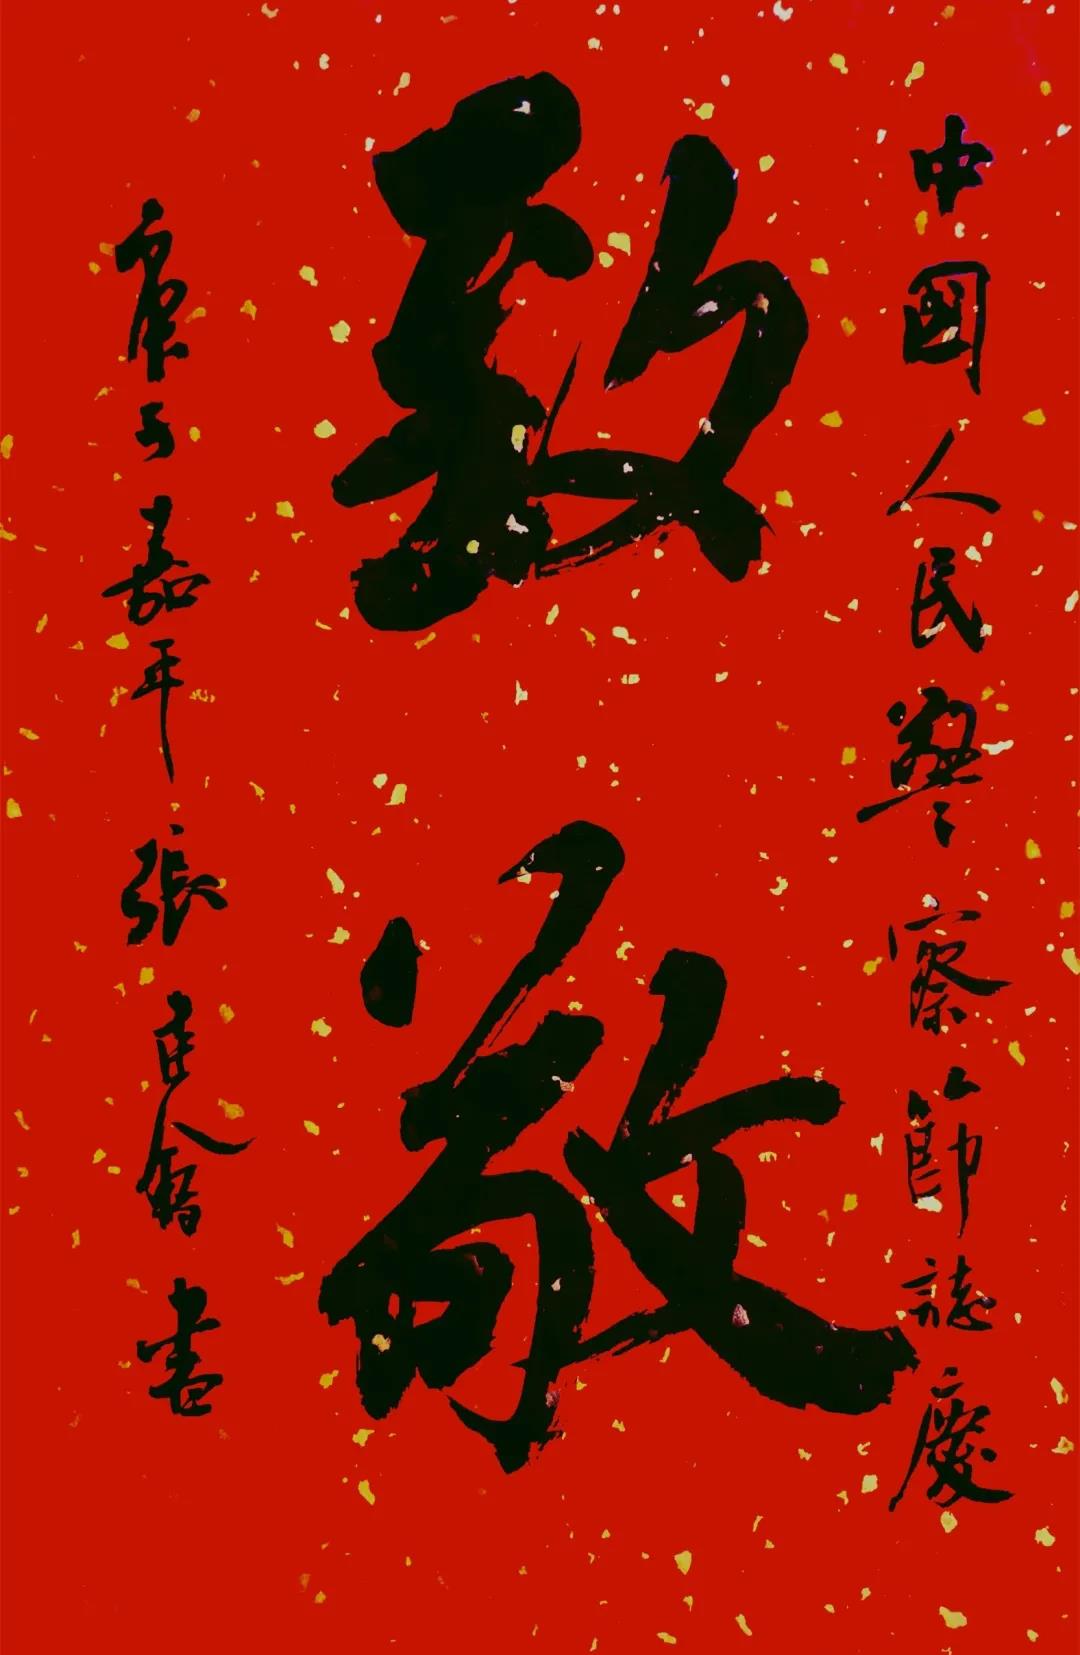 中國人民警察節誌慶
致敬
庚子嘉平張書